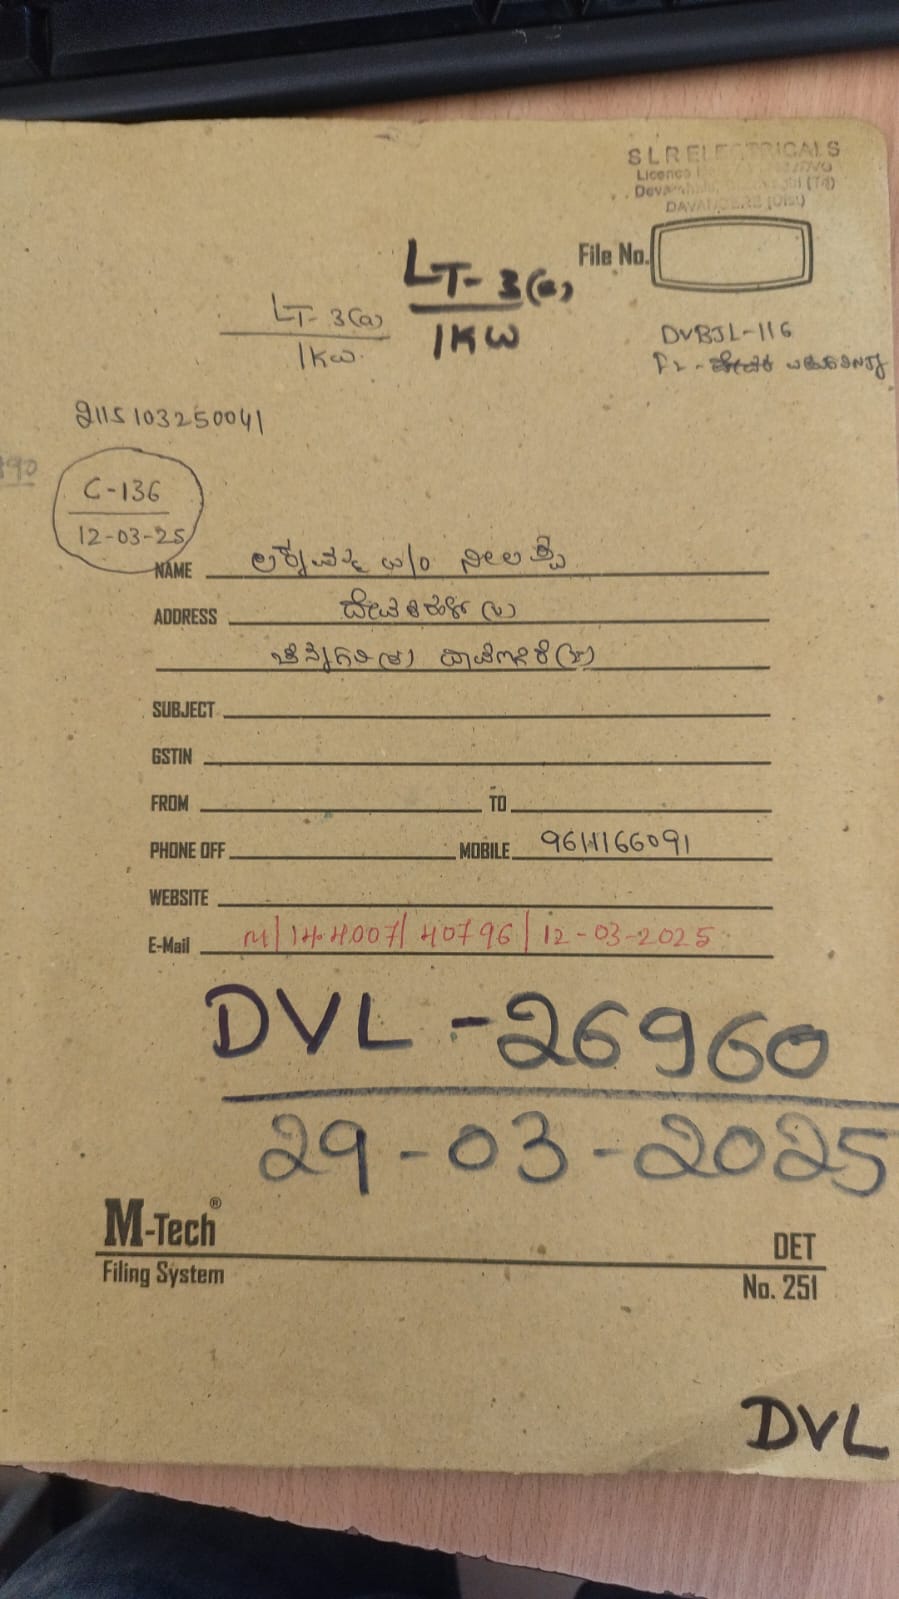 SLR ELECTRICALS
Licence
DAVANGERE (Dist)
File No.
LT-3(a)
1KW
LT-3(a)
1KW
DVBJL-116
2115103250041
C-136
12-03-25
NAME
ADDRESS ದೇವರಹಳ್ಳಿ (ಗ)
ಚನ್ನಗಿರಿ (ತಾ) ದಾವಣಗೆರೆ (ಜಿ)
SUBJECT
GSTIN
FROM TO
PHONE OFF MOBILE 9611166091
WEBSITE
E-Mail M/144007/40796/12-03-2025
DVL-26960
29-03-2025
M-Tech®
Filing System
DET
No. 251
DVL